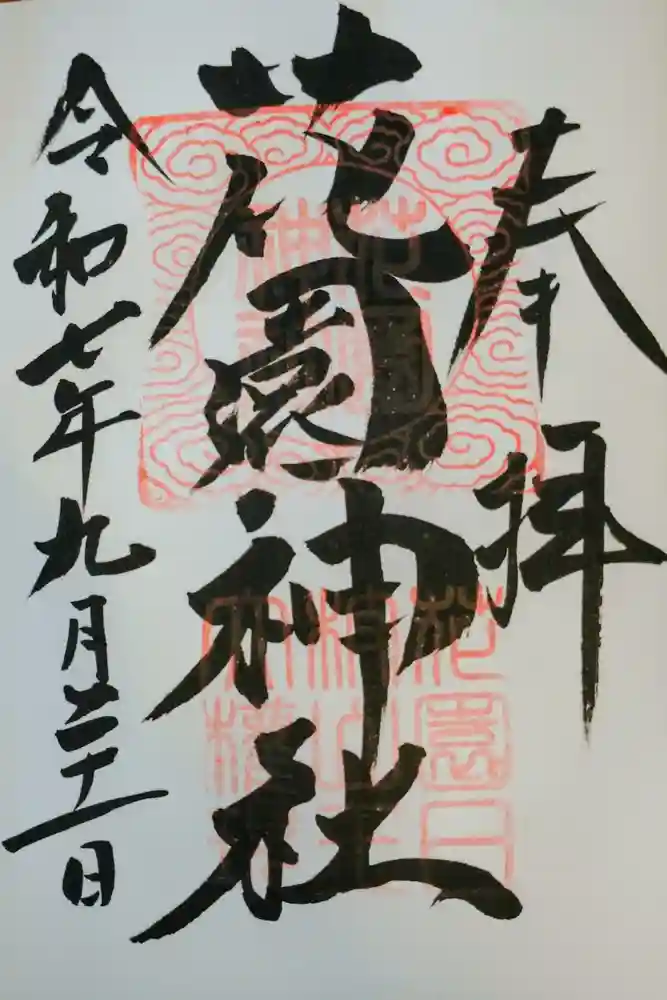 奉拝
花園神社
令和七年九月二十一日
花園神社